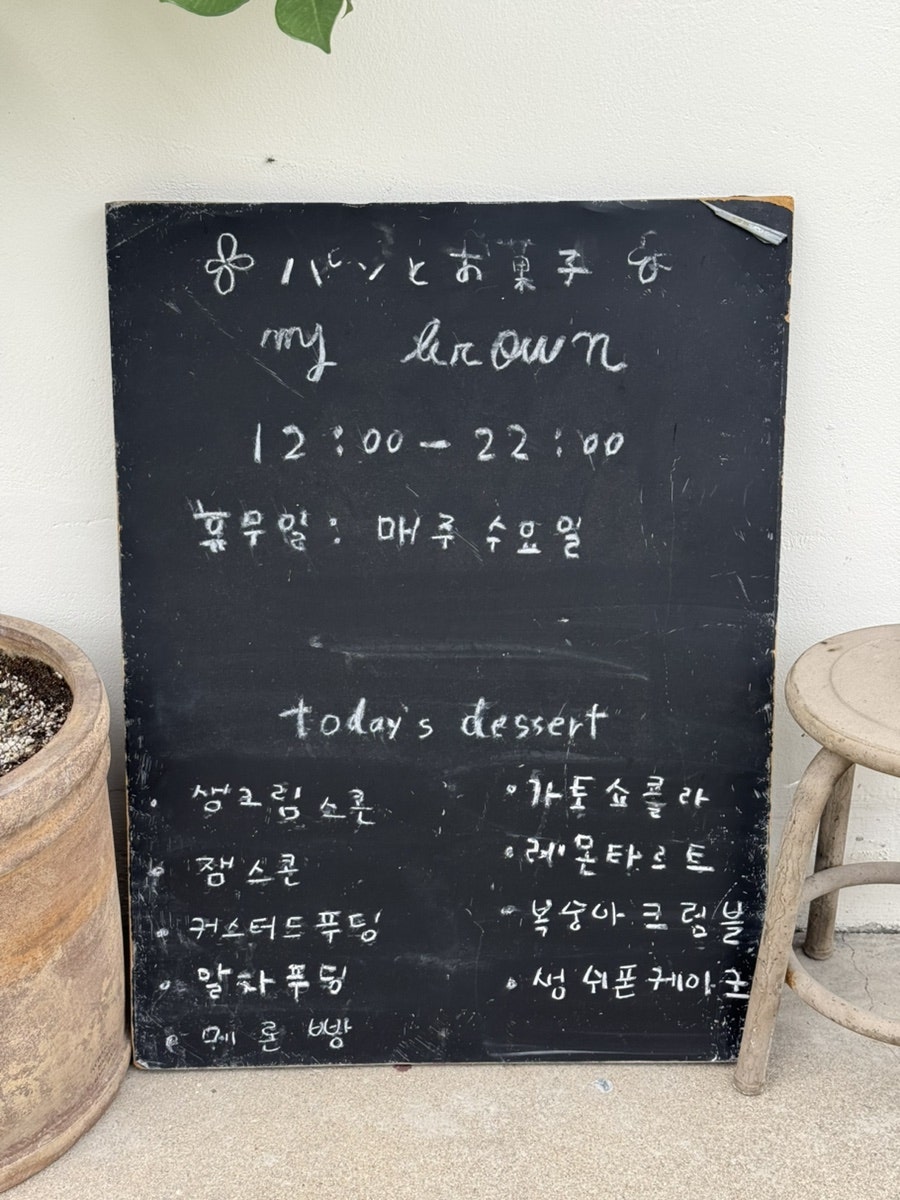 パンとお菓子
my brown
12:00-22:00
휴무일: 매주 수요일
today's dessert
· 생크림 스콘
· 잼 스콘
· 커스터드 푸딩
· 말차 푸딩
· 메론빵
· 가토 쇼콜라
· 레몬타르트
· 복숭아 크럼블
· 쉬폰케이크